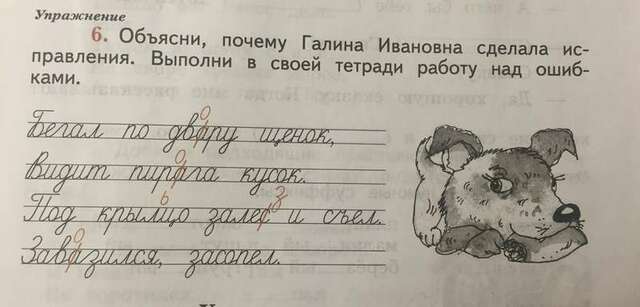 Упражнение
6. Объясни, почему Галина Ивановна сделала ис-
правления. Выполни в своей тетради работу над ошиб-
ками.
Бегал по двару щенок,
Видит пирага кусок.
Под крыльцо залес и съел.
Завазился, засопел.